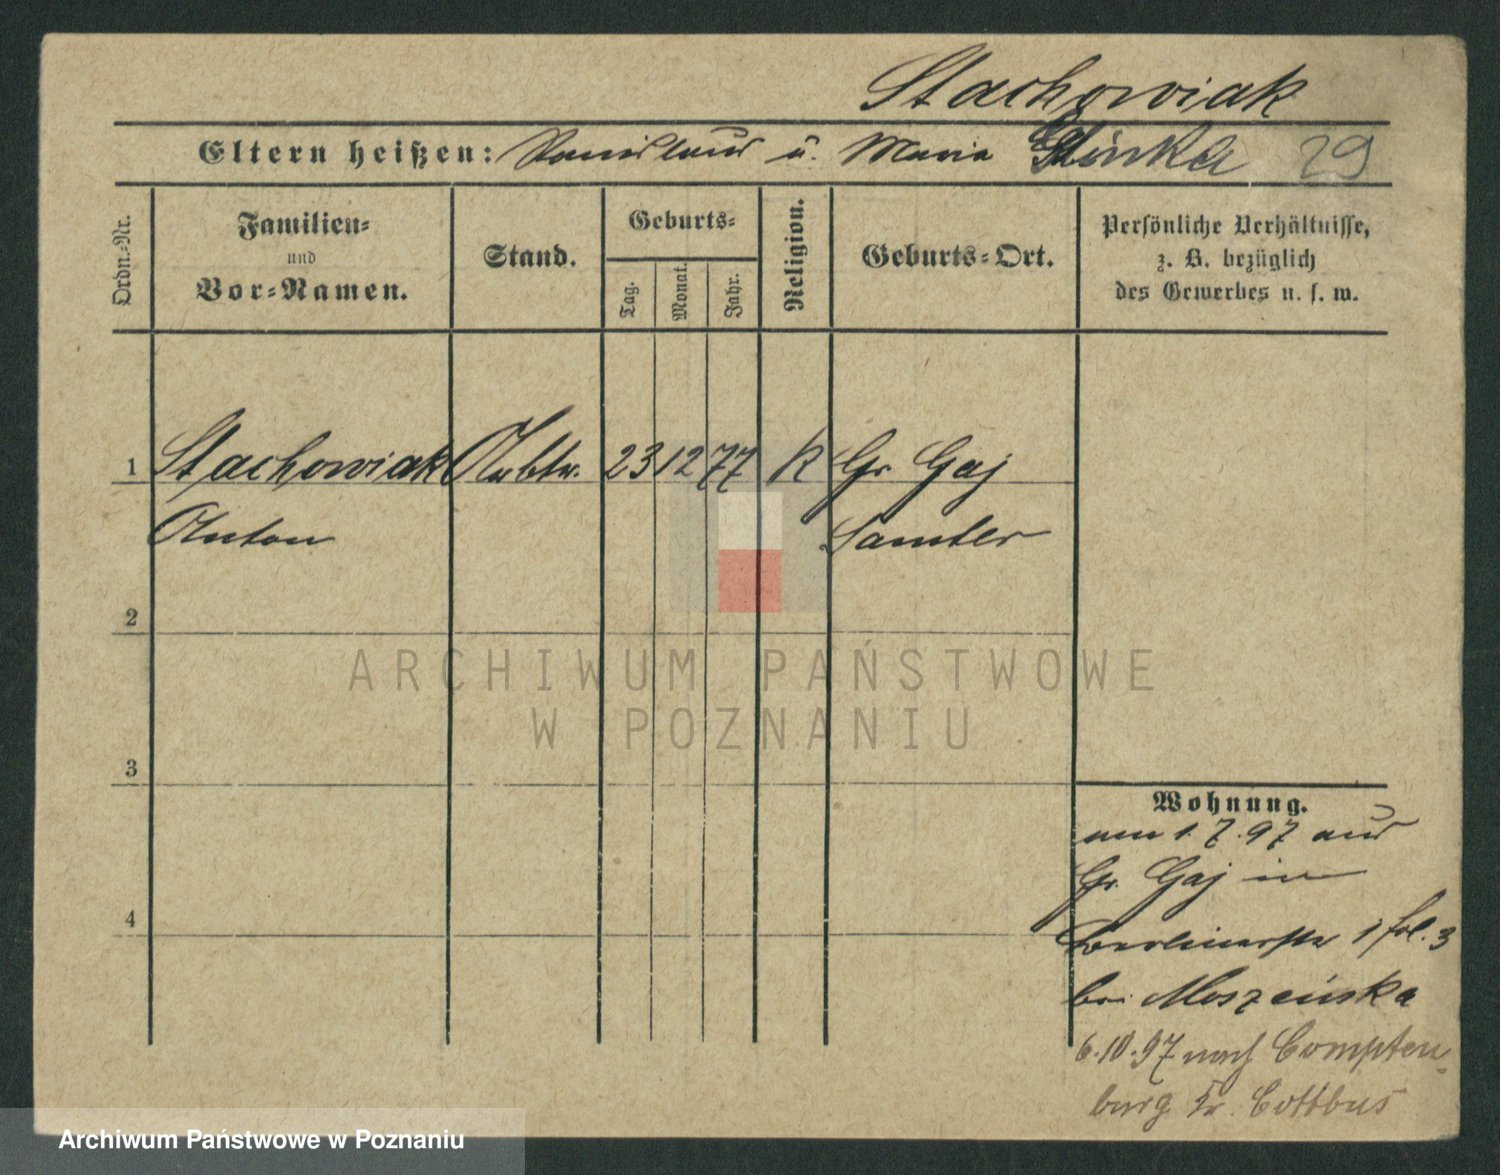 Stachowiak
Eltern heißen: Stanislaus u. Maria Glinka 29
Ordn.-Nr.
Familien-
und
Vor-Namen.
Stand.
Geburts-
Tag.
Monat.
Jahr.
Religion.
Geburts-Ort.
Persönliche Verhältnisse,
z. B. bezüglich
des Gewerbes u. s. w.
1 Stachowiak Arbtr. 23 12 77 K Gr. Gaj
Anton Samter
2
3
4
Wohnung.
am 1.7.97 aus
Gr. Gaj in
Berlinerstr 1 fol. 3
bei Moszeińska
6.10.97 nach Compten-
burg Kr. Cottbus
ARCHIWUM PAŃSTWOWE
W POZNANIU
Archiwum Państwowe w Poznaniu